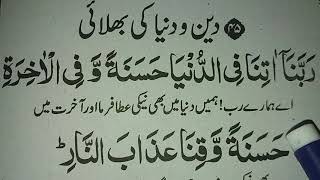 ۲۵ دین و دنیا کی بھلائی
رَبَّنَآ اٰتِنَا فِی الدُّنْیَا حَسَنَةً وَّ فِی الْاٰخِرَةِ
اے ہمارے رب! ہمیں دنیا میں بھی نیکی عطا فرما اور آخرت میں
حَسَنَةً وَّقِنَا عَذَابَ النَّارِ ؕ